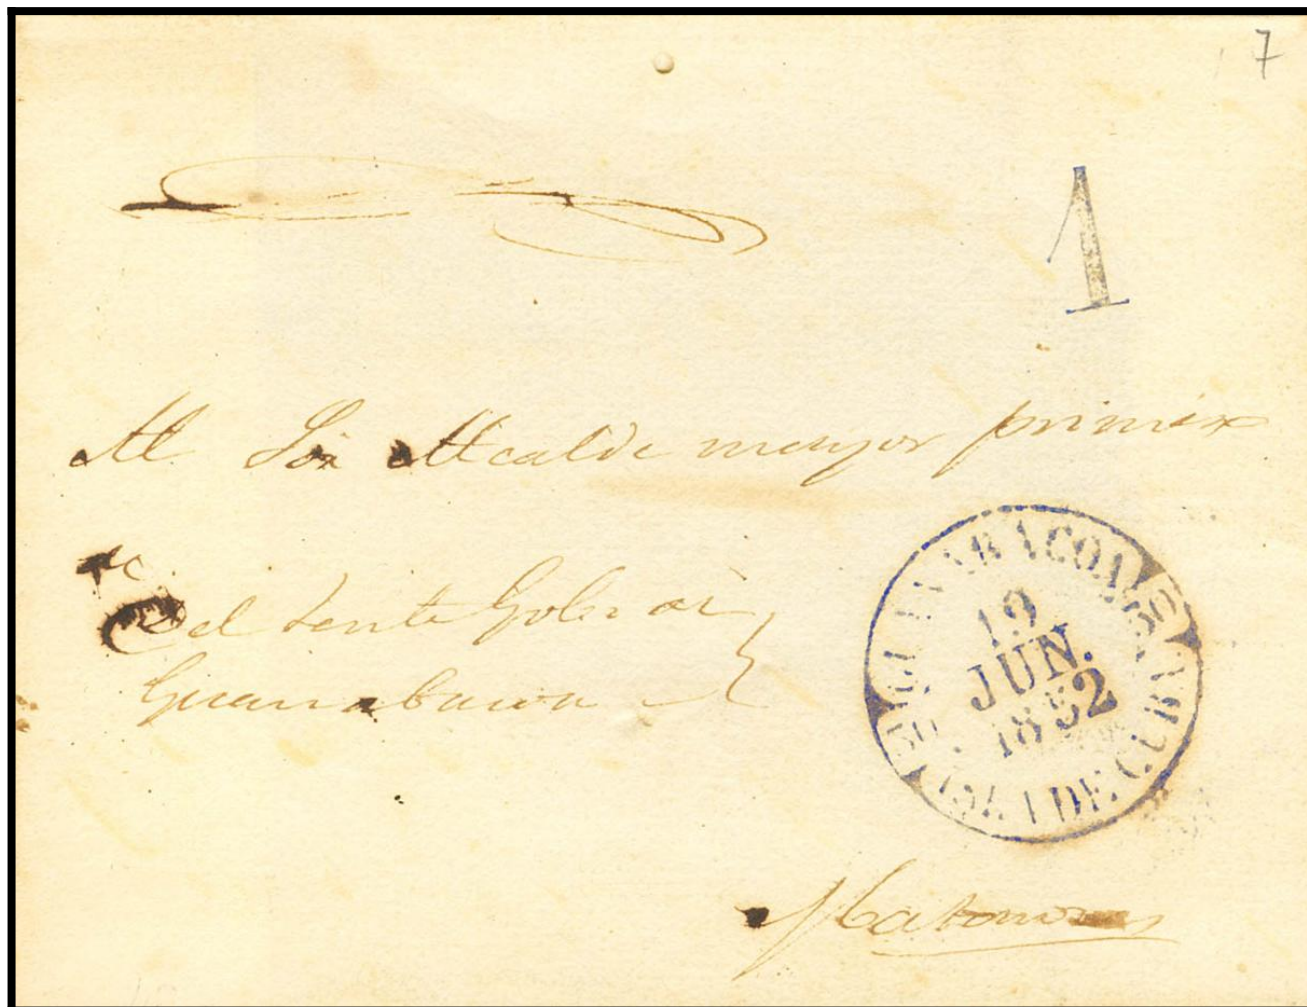 7
1
Al Sor Alcalde mayor primero
del Tente Gobr de
Guanabacoa
GUANABACOA
12
JUN.
1852
ISLA DE CUBA
Matanzas